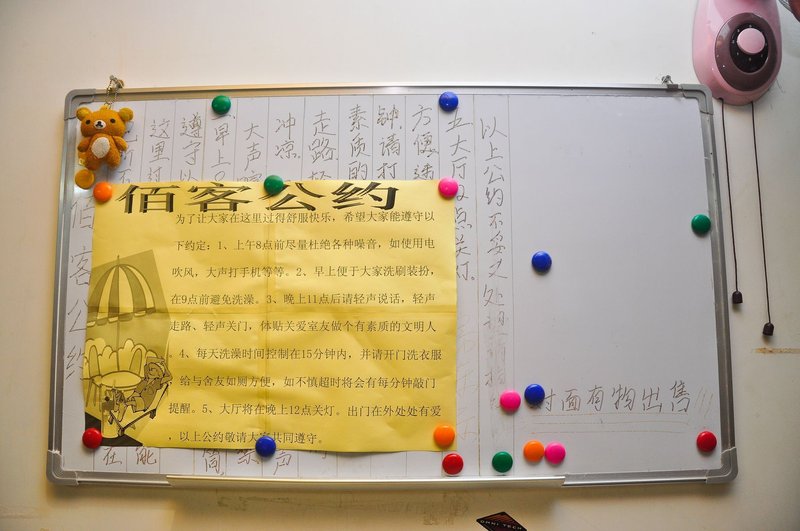 佰客公约
为了让大家在这里过得舒服快乐，希望大家能遵守以
下约定：1、上午8点前尽量杜绝各种噪音，如使用电
吹风，大声打手机等等。2、早上便于大家洗刷装扮，
在9点前避免洗澡。3、晚上11点后请轻声说话，轻声
走路、轻声关门，体贴关爱室友做个有素质的文明人
。4、每天洗澡时间控制在15分钟内，并请开门洗衣服
，给与舍友如厕方便，如不慎超时将会有每分钟敲门
提醒。5、大厅将在晚上12点关灯。出门在外处处有爱
，以上公约敬请大家共同遵守。
以上公约不妥之处
五大厅12点关灯
方便
钟请打
素质的
走路
冲凉
大声
早上
遵守以
这里
佰客公约
在能
对面有物出售!!!